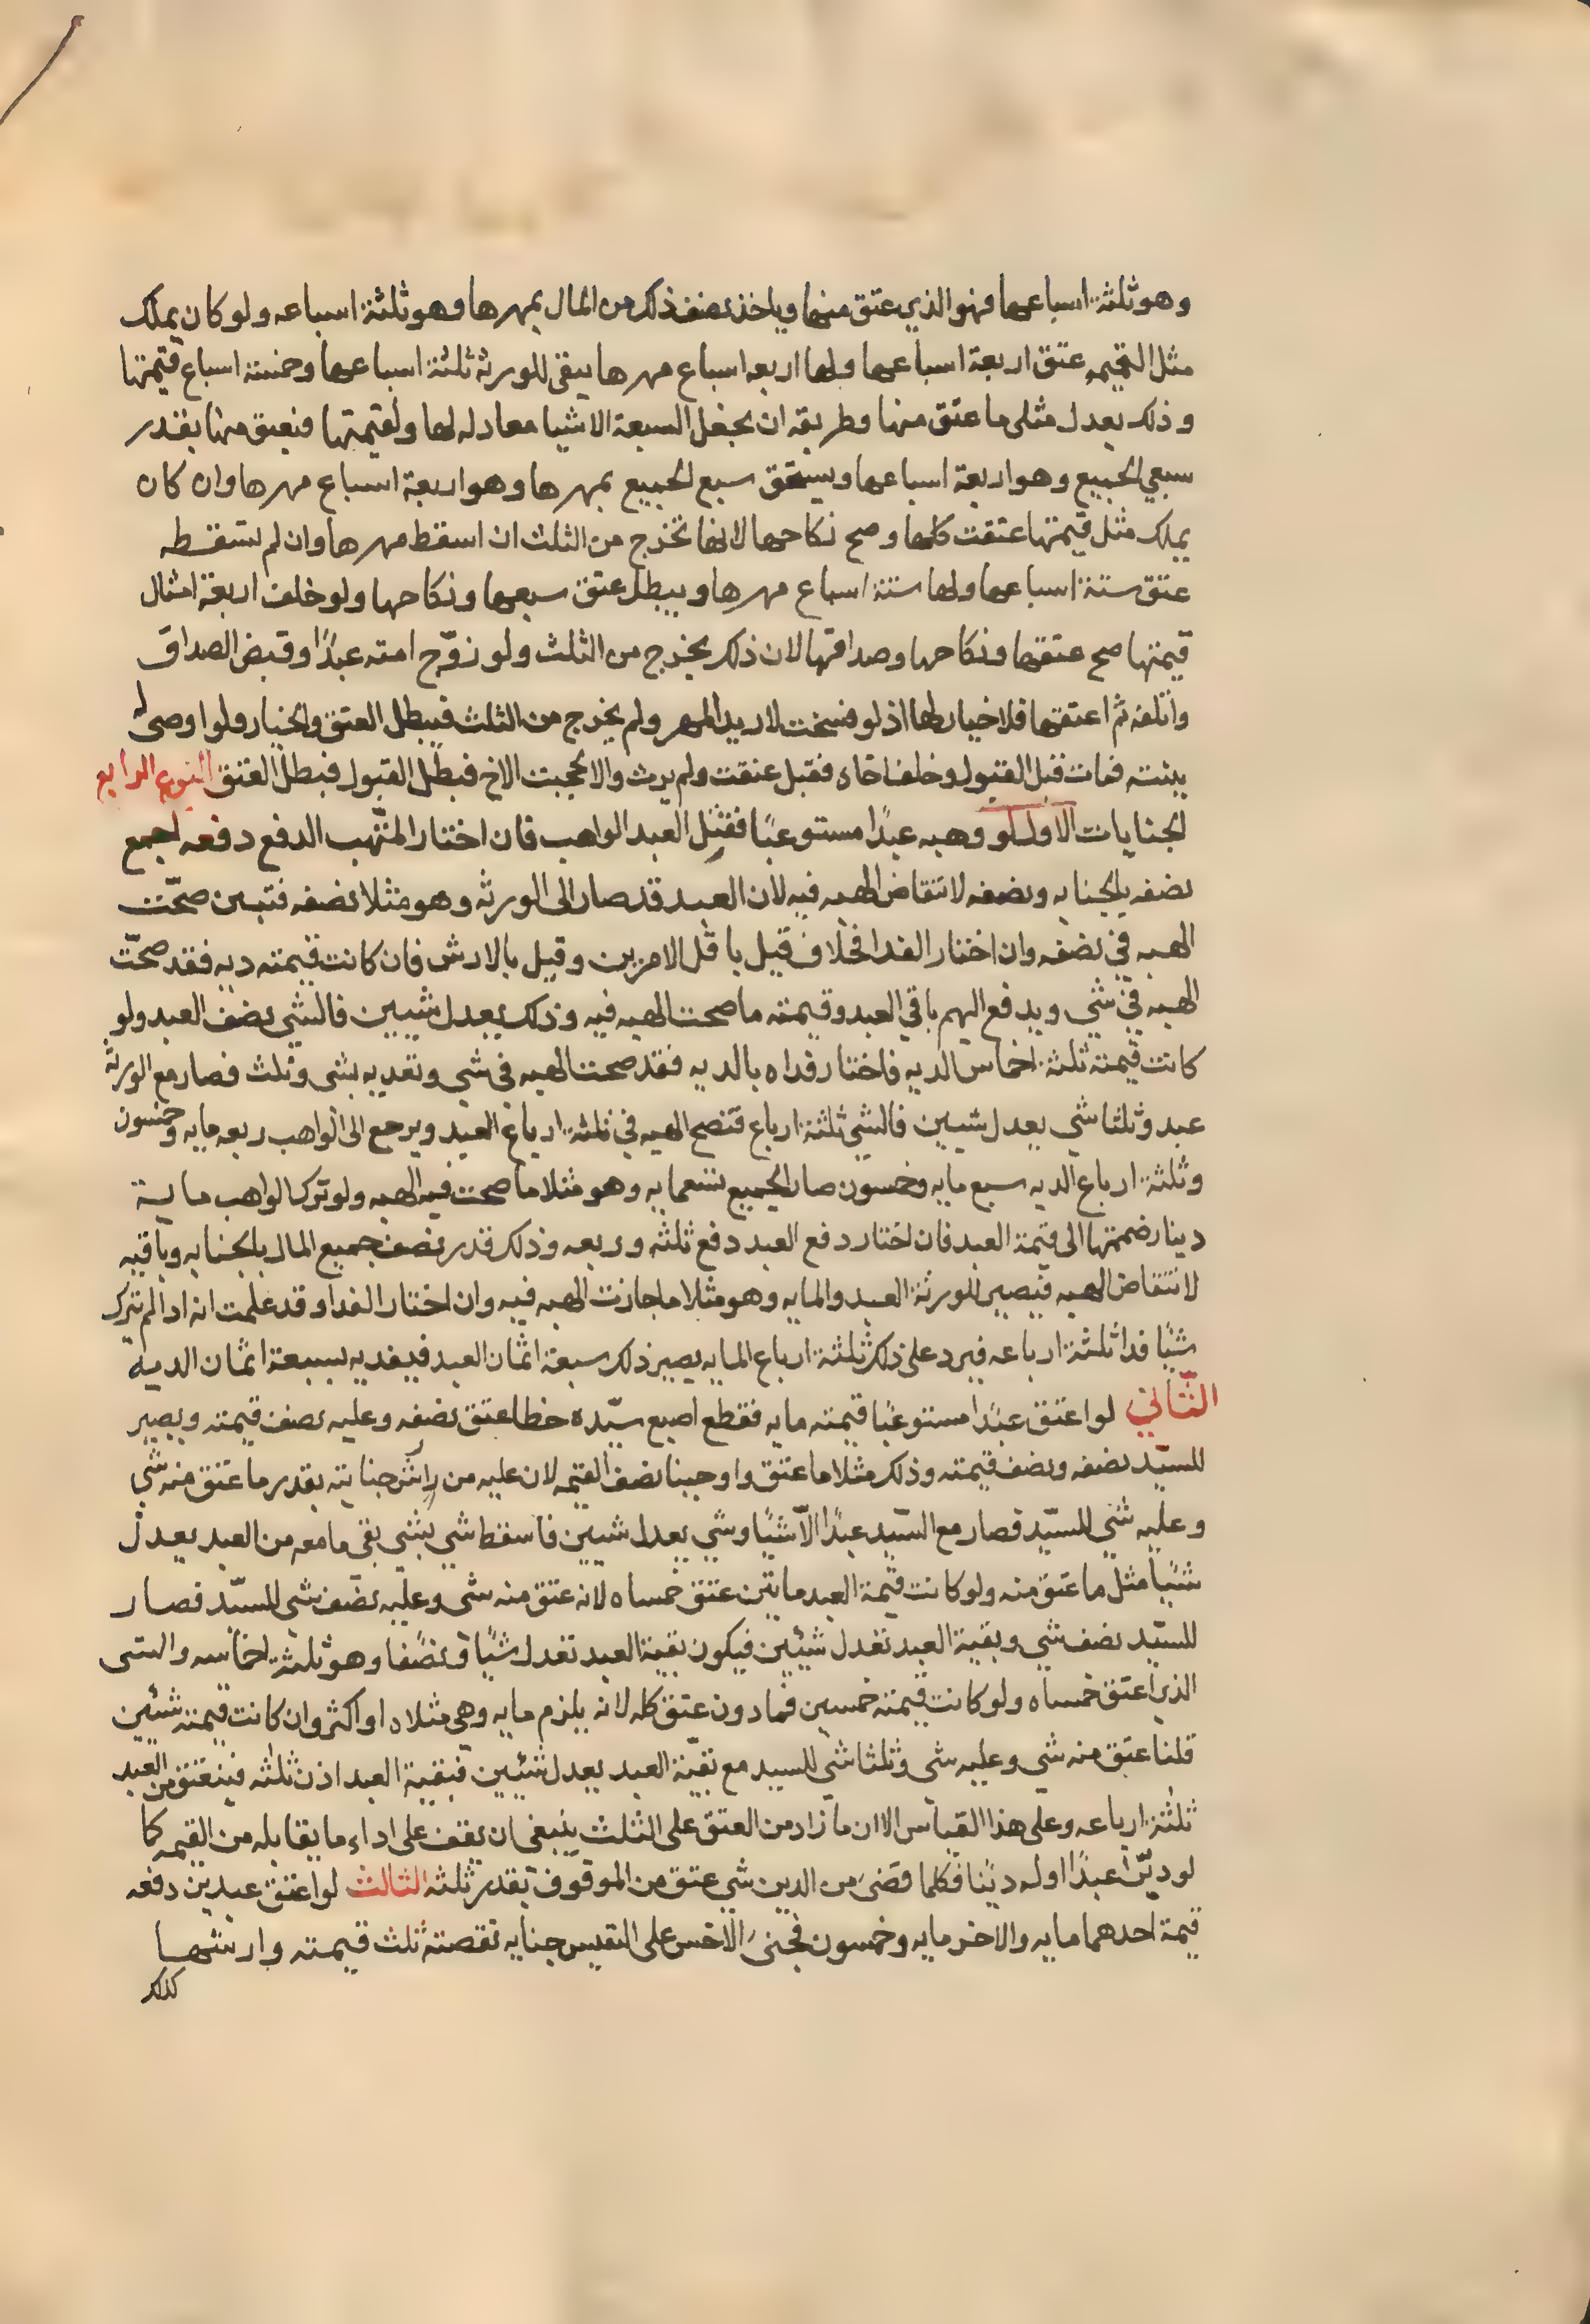 وهو ثلثة اسباعها فهو الذي عتق منها وياخذ نصف ذلك من المال بمهرها وهو ثلثة اسباعه ولو كان يملك
مثل القيمه عتق اربعة اسباعها ولها اربعه اسباع مهرها يبقى للورثة ثلثة اسباعها وخمسة اسباع قيمتها
وذلك يعدل مثلى ما عتق منها وطريقه ان يجعل السبعة الاشيا معادله لها ولقيمتها فيعتق منها بقدر
سبعي الجميع وهو اربعة اسباعها ويستحق سبع الجميع بمهرها وهو اربعة اسباع مهرها وان كان
يملك مثل قيمتها عتقت كلها وصح نكاحها لانها تخرج من الثلث ان اسقط مهرها وان لم تسقطه
عتق ستة اسباعها ولها ستة اسباع مهرها ويبطل عتق سبعها ونكاحها ولو خلف اربعة امثال
قيمتها صح عتقها ونكاحها وصداقها لان ذلك يخرج من الثلث ولو زوّج امته عبدًا وقبض الصداق
واتلفه ثم اعتقها فلا خيار لها اذ لو فسخت لاريد المهر ولم يخرج من الثلث فيبطل العتق والخيار ولو اوصى له
ببنته فمات قبل القبول وخلف اخاه فقبل عتقت ولم يرث والا لحجبت الاخ فبطل القبول فبطل العتق النوع الرابع
الجنايات الاول لو وهبه عبدًا مستوعبًا فقتل العبد الواهب فان اختار المتهب الدفع دفعه اجمع
نصفه بالجنايه ونصفه لانتقاض الهبه فيه لان العبد قد صار الى الورثه وهو مثلا نصفه فتبين صحّت
الهبه في نصفه وان اختار الفدا فخلاف قيل باقل الامرين وقيل بالارش فان كانت قيمته ديه فقد صحّت
الهبه في شي ويدفع اليهم باقي العبد وقيمته ما صحت الهبه فيه وذلك يعدل شيين فالشي نصف العبد ولو
كانت قيمته ثلثة اخماس الديه فاختار فداه بالديه فقد صحت الهبه في شي وتفديه بشى وثلث فصار مع الورثه
عبد وثلثا شي يعدل شيين فالشي ثلثة ارباع فتصح الهبه في ثلثة ارباع العبد ويرجع الى الواهب ربعه مايه وخمسون
وثلثة ارباع الديه سبع مايه وخمسون صار الجميع تسعمايه وهو مثلا ما صحت فيه الهبه ولو ترك الواهب ماية
دينار ضممتها الى قيمة العبد فان اختار دفع العبد دفع ثلثه وربعه وذلك قدر نصف جميع المال بالجنايه وباقيه
لانتقاض الهبه فيصير للورثة العبد والمايه وهو مثلا ما جازت الهبه فيه وان اختار الفدا وقد علمت انه اذا لم يترك
شيًا فدا ثلثة ارباعه فيرد على ذلك ثلثة ارباع المايه يصير ذلك سبعة اثمان العبد فيفديه بسبعة اثمان الدية
الثّاني لو اعتق عبدًا مستوعبًا قيمته مايه فقطع اصبع سيّده خطا عتق نصفه وعليه نصف قيمته ويصير
للسيّد نصفه ونصف قيمته وذلك مثلا ما عتق واوجبنا نصف القيمه لان عليه من ارش جنايته بقدر ما عتق منه شي
وعليه شي للسيّد فصار مع السيّد عبدًا الّا شيًا وشي يعدل شيين فاسقط شي بشي بقى ما معه من العبد يعدل
شيًا مثل ما عتق منه ولو كانت قيمة العبد مايتين عتق خمساه لانه عتق منه شي وعليه نصف شي للسيّد فصار
للسيّد نصف شي وبقية العبد تعدل شيئين فيكون بقية العبد تعدل شيًا ونصفًا وهو ثلثة اخماسه والشى
الذي اعتق خمساه ولو كانت قيمته خمسين فما دون عتق كله لانه يلزم مايه وهي مثلاه او اكثر وان كانت قيمته ستين
قلنا عتق منه شي وعليه شى وثلثا شي للسيد مع بقيّة العبد يعدل شيئين فبقية العبد اذن ثلثه فيعتق من العبد
ثلثة ارباعه وعلى هذا القياس الا ان ما زاد من العتق على الثلث ينبغي ان يقف على اداء ما يقابله من القيمه كما
لو دبّر عبدًا وله دينًا فكلما قضى من الدين شي عتق من الموقوف بقدر ثلثه الثالث لو اعتق عبدين دفعه
قيمة احدهما مايه والاخر مايه وخمسون فجنى الاخس على النفيس جنايه نقصته ثلث قيمته وارشها
كذلك